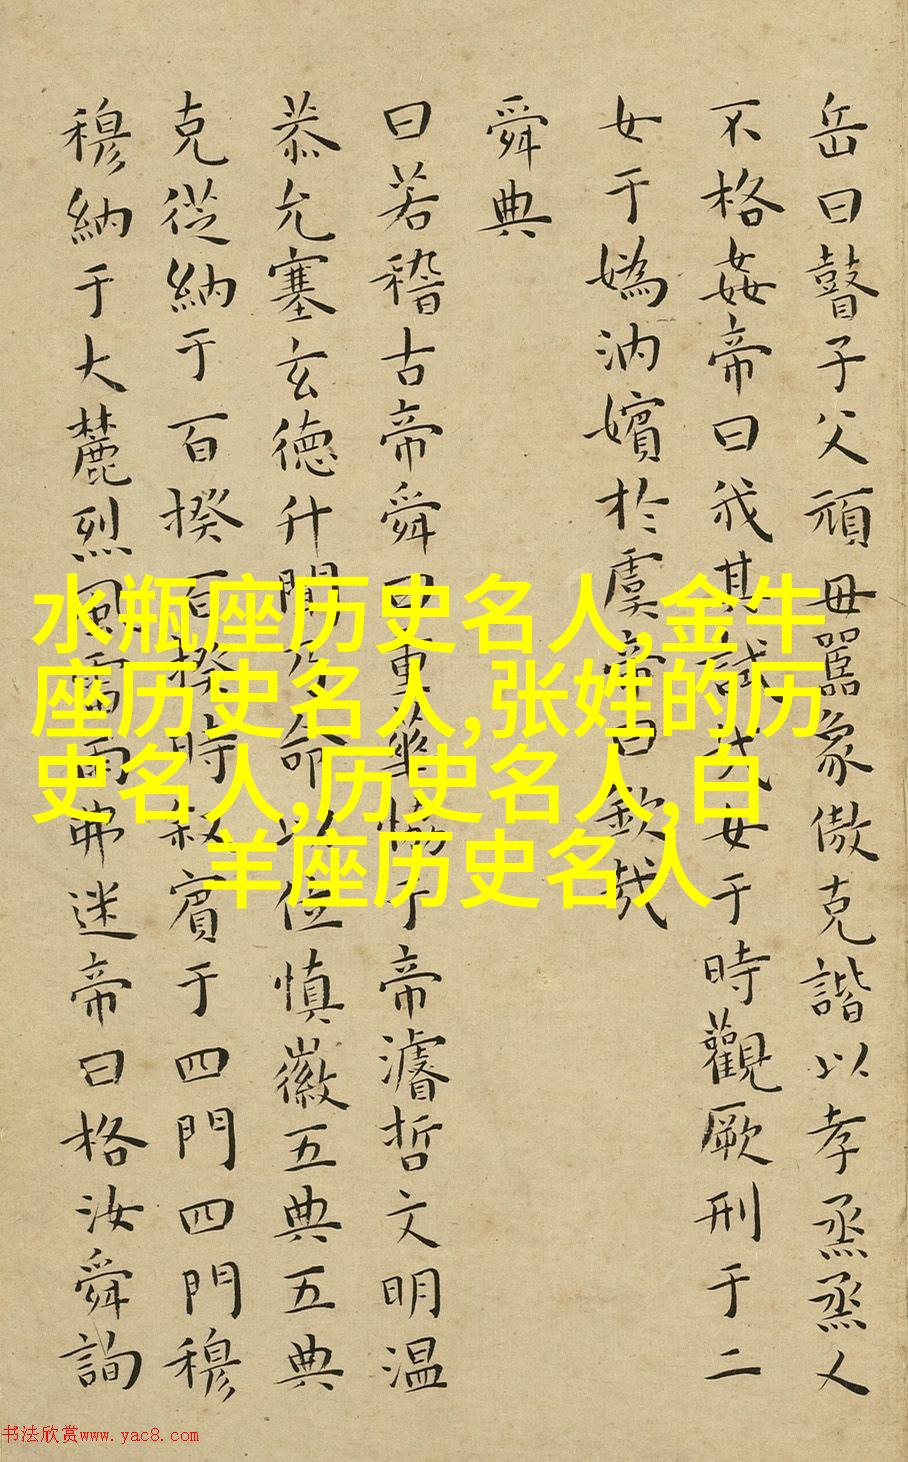 岳曰瞽子父頑毋嚚象傲克諧以孝烝烝乂
不格姦帝曰我其試哉女于時觀厥刑于二
女于媯汭嬪於虞帝曰欽哉
舜典
曰若稽古帝舜曰重華協于帝濬哲文明温
恭允塞玄德升聞乃命以位慎徽五典五典
克從納于百揆百揆時叙賓于四門四門穆
穆納于大麓烈風雷雨弗迷帝曰格汝舜詢
水瓶座历史名人,金牛
座历史名人,张姓的历
史名人,历史名人,白
羊座历史名人
书法欣赏www.yac8.com